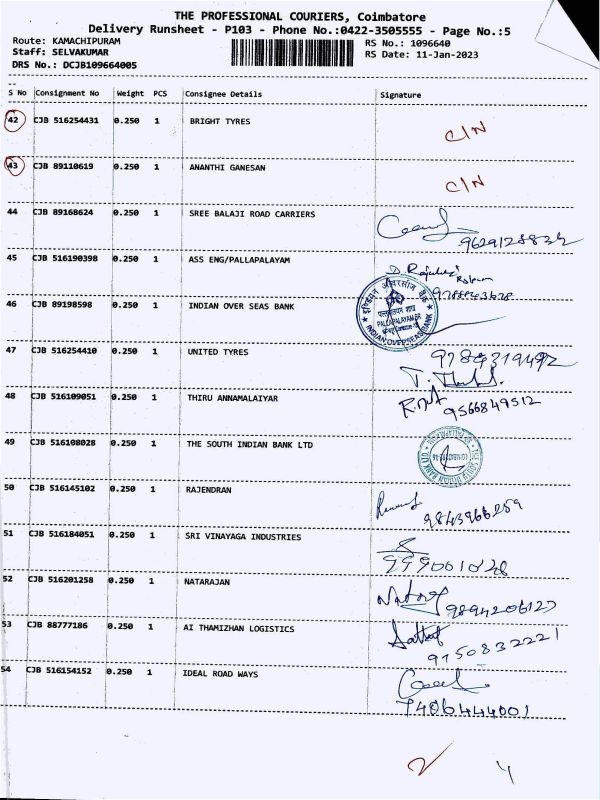 THE PROFESSIONAL COURIERS, Coimbatore
Delivery Runsheet - P103 - Phone No.:0422-3505555 - Page No.:5
Route: KAMACHIPURAM
RS No.: 1096640
Staff: SELVAKUMAR
RS Date: 11-Jan-2023
DRS No.: DCJB109664005
S No Consignment No Weight PCS Consignee Details Signature
42 CJB 516254431 0.250 1 BRIGHT TYRES C/N
43 CJB 89110619 0.250 1 ANANTHI GANESAN C/N
44 CJB 89168624 0.250 1 SREE BALAJI ROAD CARRIERS
45 CJB 516190398 0.250 1 ASS ENG/PALLAPALAYAM
46 CJB 89198598 0.250 1 INDIAN OVER SEAS BANK
INDIAN OVERSEAS BANK
47 CJB 516254410 0.250 1 UNITED TYRES
48 CJB 516109051 0.250 1 THIRU ANNAMALAIYAR
9566849512
49 CJB 516108028 0.250 1 THE SOUTH INDIAN BANK LTD
50 CJB 516145102 0.250 1 RAJENDRAN
9843966259
51 CJB 516184051 0.250 1 SRI VINAYAGA INDUSTRIES
52 CJB 516201258 0.250 1 NATARAJAN
9894206127
53 CJB 88777186 0.250 1 AI THAMIZHAN LOGISTICS
9750832221
54 CJB 516154152 0.250 1 IDEAL ROAD WAYS
7406444001